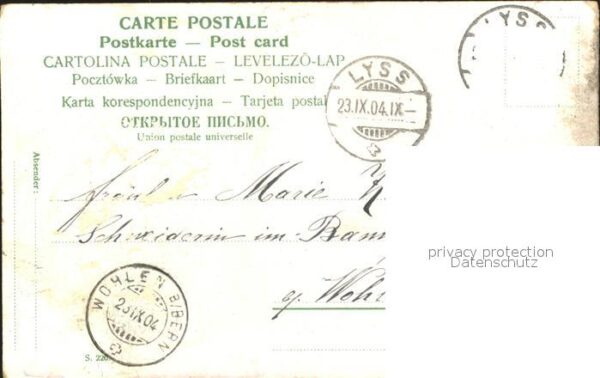 CARTE POSTALE
Postkarte — Post card
CARTOLINA POSTALE – LEVELEZŐ-LAP
Pocztówka – Briefkaart – Dopisnice
Karta korespondencyjna – Tarjeta postal
ОТКРЫТОЕ ПИСЬМО.
Union postale universelle
LYSS
23.IX.04.IX-
LYSS
Absender:
Fräulein Marie
Schneiderin im
privacy protection
Datenschutz
g. Wohl
WOHLEN B/BERN
23 IX 04
S. 220